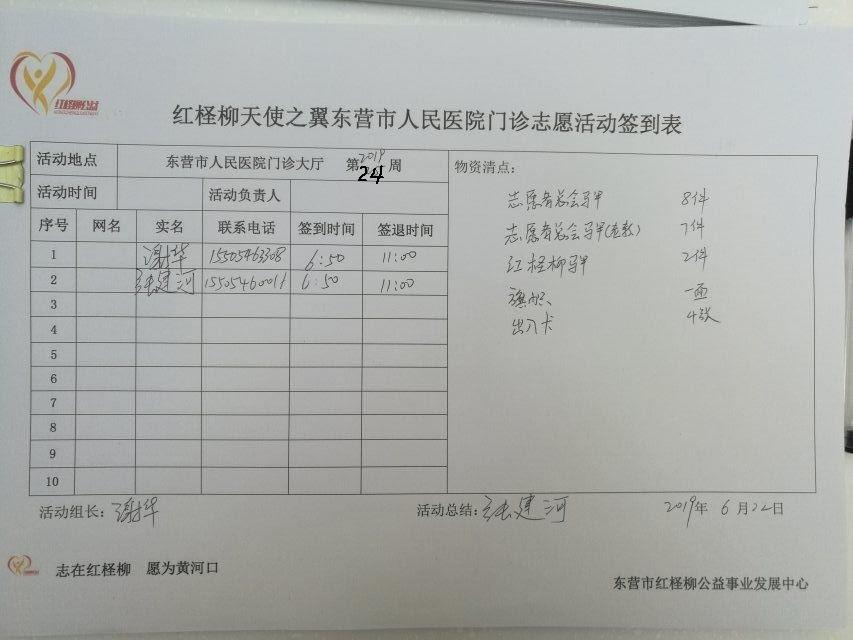 红柽柳公益
红柽柳天使之翼东营市人民医院门诊志愿活动签到表
活动地点 东营市人民医院门诊大厅 第2019 24周
活动时间 活动负责人
序号 网名 实名 联系电话 签到时间 签退时间
1 谢华 15505463308 6:50 11:00
2 张建河 15505460011 6:50 11:00
3
4
5
6
7
8
9
10
物资清点:
志愿者总会马甲 8件
志愿者总会马甲 7件
红柽柳马甲 2件
旗帜 一面
出入卡 4张
活动组长: 谢华 活动总结: 张建河 2019年 6月22日
志在红柽柳 愿为黄河口
东营市红柽柳公益事业发展中心